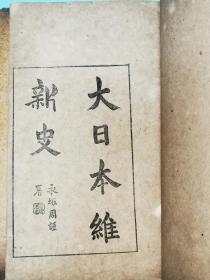 大日本維
新史
永坂周謹
署